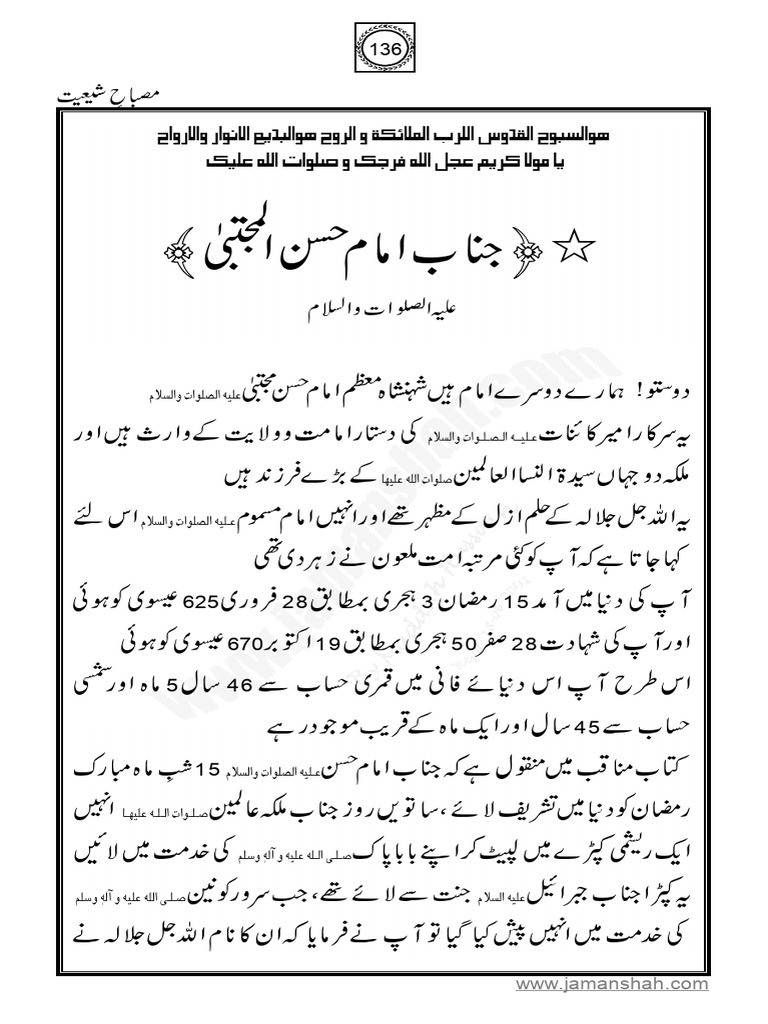 136
مصباحِ شیعیت
هوالسبوح القدوس اللرب الملائكة و الروح هوالبديع الانوار والارواح
يا مولا كريم عجل الله فرجك و صلوات الله عليك
☆ ﴿ جناب امام حسن المجتبیٰ ﴾
علیہ الصلوات والسلام
دوستو! ہمارے دوسرے امام ہیں شہنشاہ معظم امام حسن مجتبیٰ علیہ الصلوات والسلام
یہ سرکار امیر کائنات علیہ الصلوات والسلام کی دستار امامت و ولایت کے وارث ہیں اور
ملکہ دو جہاں سیدۃ النسا العالمین صلوات اللہ علیہا کے بڑے فرزند ہیں
یہ اللہ جل جلالہ کے حلم ازل کے مظہر تھے اور انہیں امام مسموم علیہ الصلوات والسلام اس لئے
کہا جاتا ہے کہ آپ کو کئی مرتبہ امت ملعون نے زہر دی تھی
آپ کی دنیا میں آمد 15 رمضان 3 ہجری بمطابق 28 فروری 625 عیسوی کو ہوئی
اور آپ کی شہادت 28 صفر 50 ہجری بمطابق 19 اکتوبر 670 عیسوی کو ہوئی
اس طرح آپ اس دنیائے فانی میں قمری حساب سے 46 سال 5 ماہ اور شمسی
حساب سے 45 سال اور ایک ماہ کے قریب موجود رہے
کتاب مناقب میں منقول ہے کہ جناب امام حسن علیہ الصلوات والسلام 15 شبِ ماہ مبارک
رمضان کو دنیا میں تشریف لائے، ساتویں روز جناب ملکہ عالمین صلوات اللہ علیہا انہیں
ایک ریشمی کپڑے میں لپیٹ کر اپنے بابا پاک صلی اللہ علیہ و آلہ وسلم کی خدمت میں لائیں
یہ کپڑا جناب جبرائیل علیہ السلام جنت سے لائے تھے، جب سرور کونین صلی اللہ علیہ و آلہ وسلم
کی خدمت میں انہیں پیش کیا گیا تو آپ نے فرمایا کہ ان کا نام اللہ جل جلالہ نے
www.jamanshah.com
www.jamanshah.com